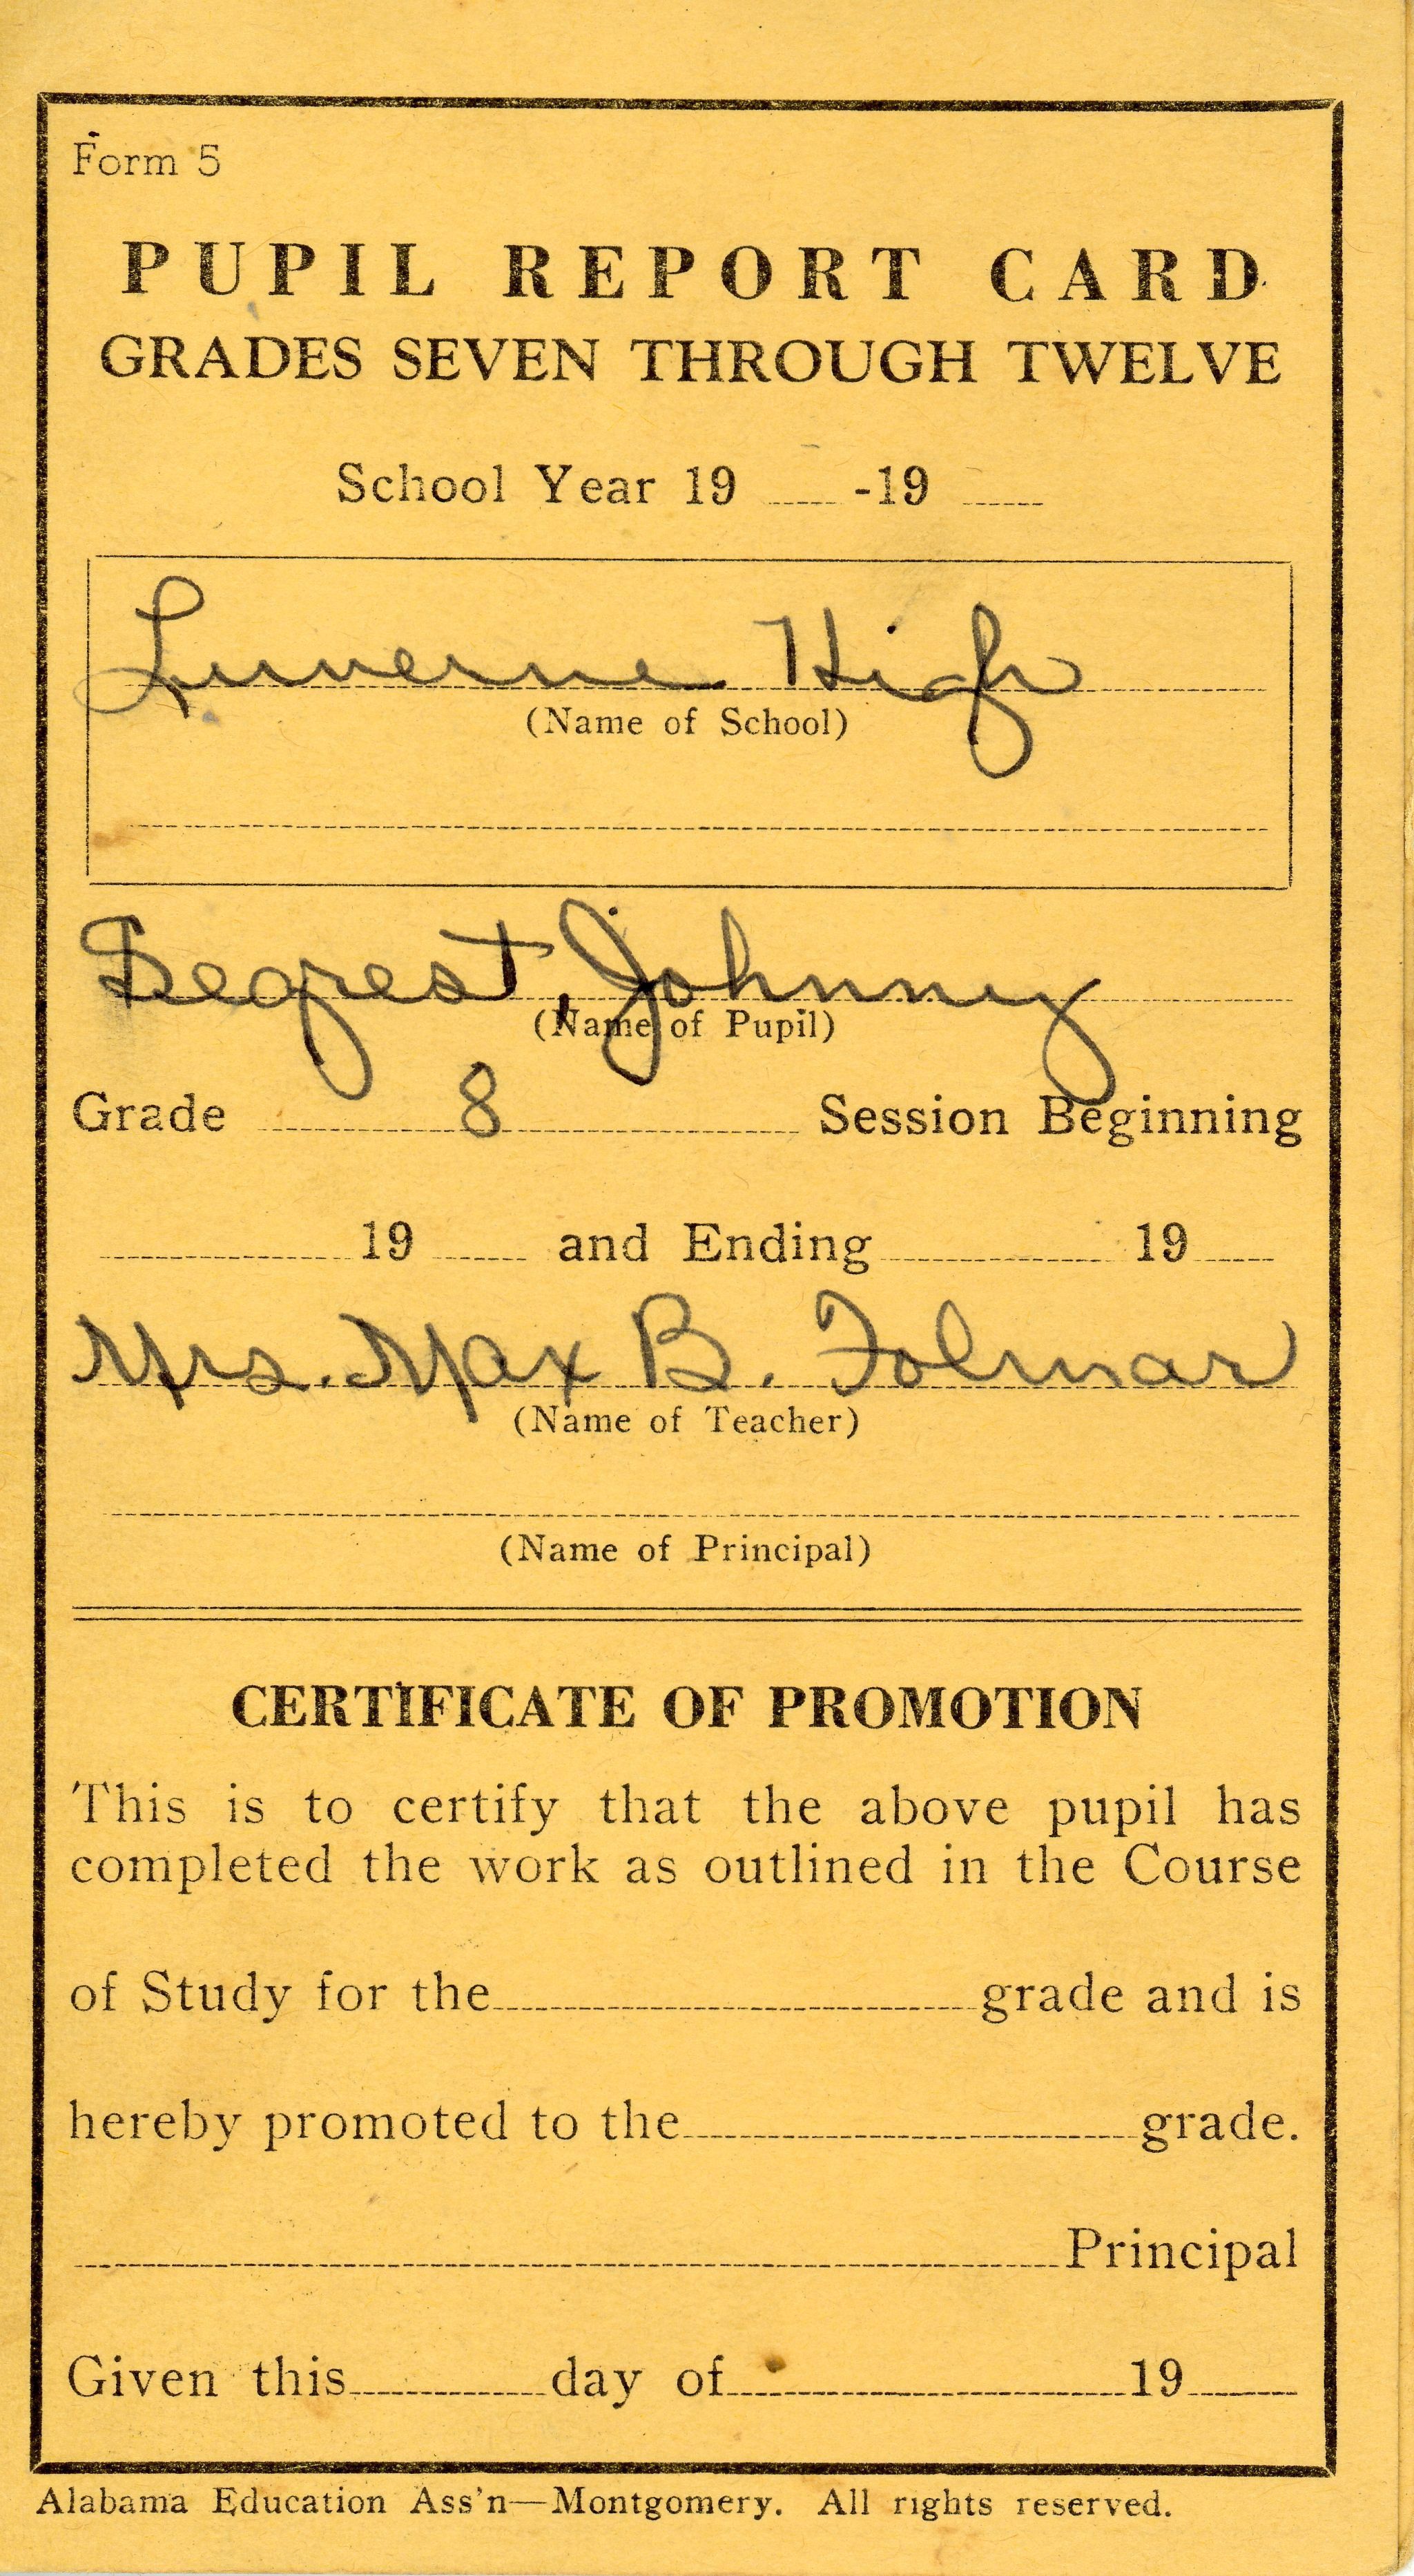 Form 5
PUPIL REPORT CARD
GRADES SEVEN THROUGH TWELVE
School Year 19 -19
Luverne High
(Name of School)
Segrest, Johnny
(Name of Pupil)
Grade 8 Session Beginning
19 and Ending 19
Mrs. Max B. Folmar
(Name of Teacher)
(Name of Principal)
CERTIFICATE OF PROMOTION
This is to certify that the above pupil has
completed the work as outlined in the Course
of Study for the grade and is
hereby promoted to the grade.
Principal
Given this day of 19
Alabama Education Ass'n—Montgomery. All rights reserved.